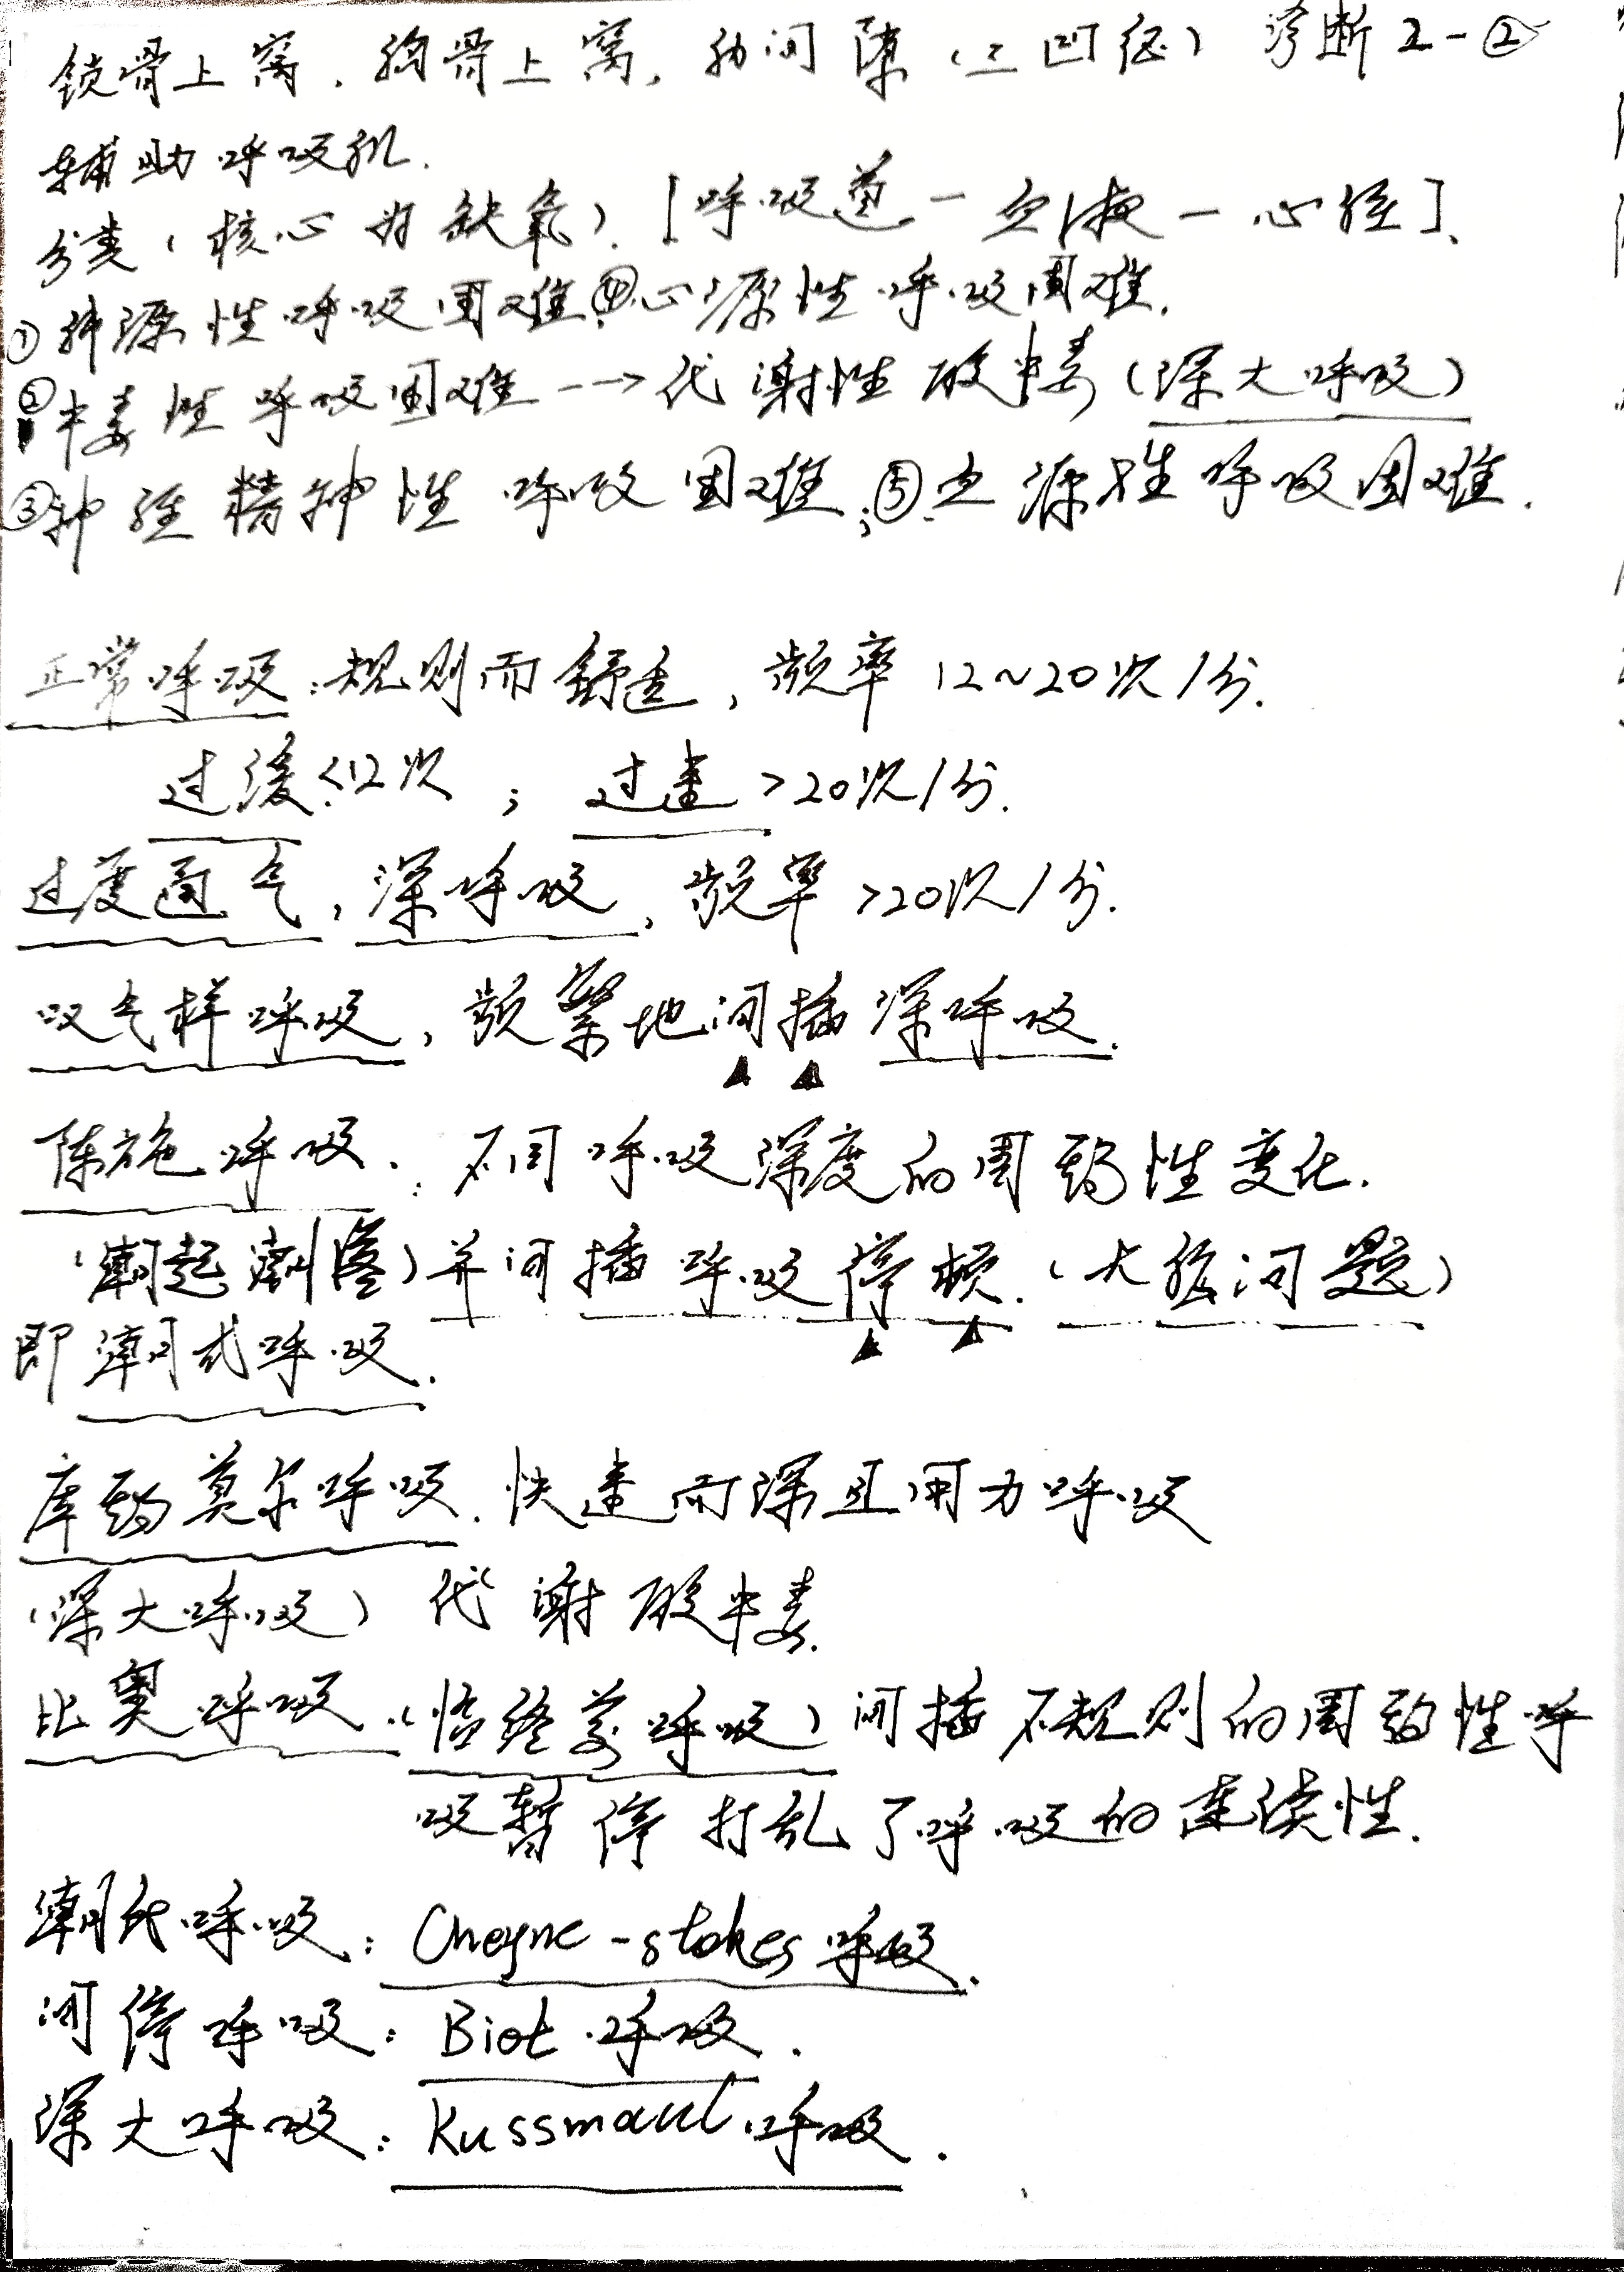 锁骨上窝、胸骨上窝、肋间隙（三凹征） 诊断2-②
辅助呼吸肌.
分类（核心为缺氧）.［呼吸道－血液－心经］.
①肺源性呼吸困难.④心源性呼吸困难.
②中毒性呼吸困难--→代谢性酸中毒（深大呼吸）
③神经精神性呼吸困难;⑤血源性呼吸困难.
正常呼吸:规则而舒适,频率12~20次/分.
过缓<12次;过速>20次/分.
过度通气,深呼吸,频率>20次/分.
叹气样呼吸,频繁地间插深呼吸.
陈施呼吸:不同呼吸深度的周期性变化.
（潮起潮落）并间插呼吸停顿.（大脑问题）
即潮式呼吸.
库斯莫尔呼吸.快速而深且用力呼吸
（深大呼吸）代谢酸中毒.
比奥呼吸.（临终前呼吸）间插不规则的周期性呼
吸暂停打乱了呼吸的连续性.
潮式呼吸:Cheyne-stokes呼吸.
间停呼吸:Biot呼吸.
深大呼吸:Kussmaul呼吸.